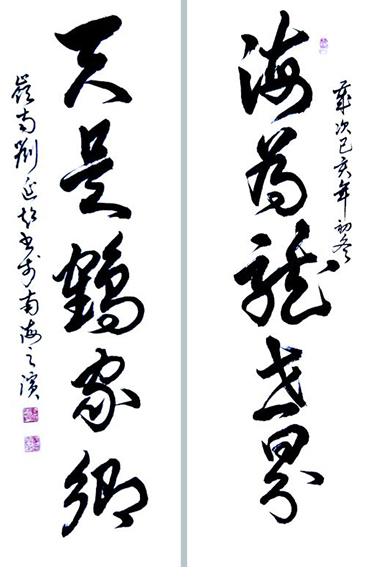 歲次己亥年初冬
海為龍世界
天是鶴家鄉
嶺南劉延書於南海之濱